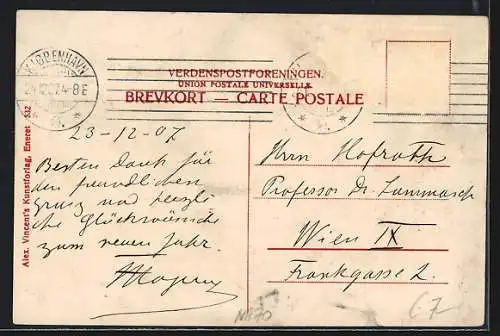 KJØBENHAVN
24.12.07.4-8E
VERDENSPOSTFORENINGEN.
UNION POSTALE UNIVERSELLE.
BREVKORT — CARTE POSTALE
Alex. Vincent's Kunstforlag, Eneret. 532
23-12-07
Besten Dank für
den freundlichen
gruss und herzli-
che Glückwünsche
zum neuen Jahr.
Herrn Hofrath
Professor Dr. Lammasch
Wien IX
Frankgasse 2.